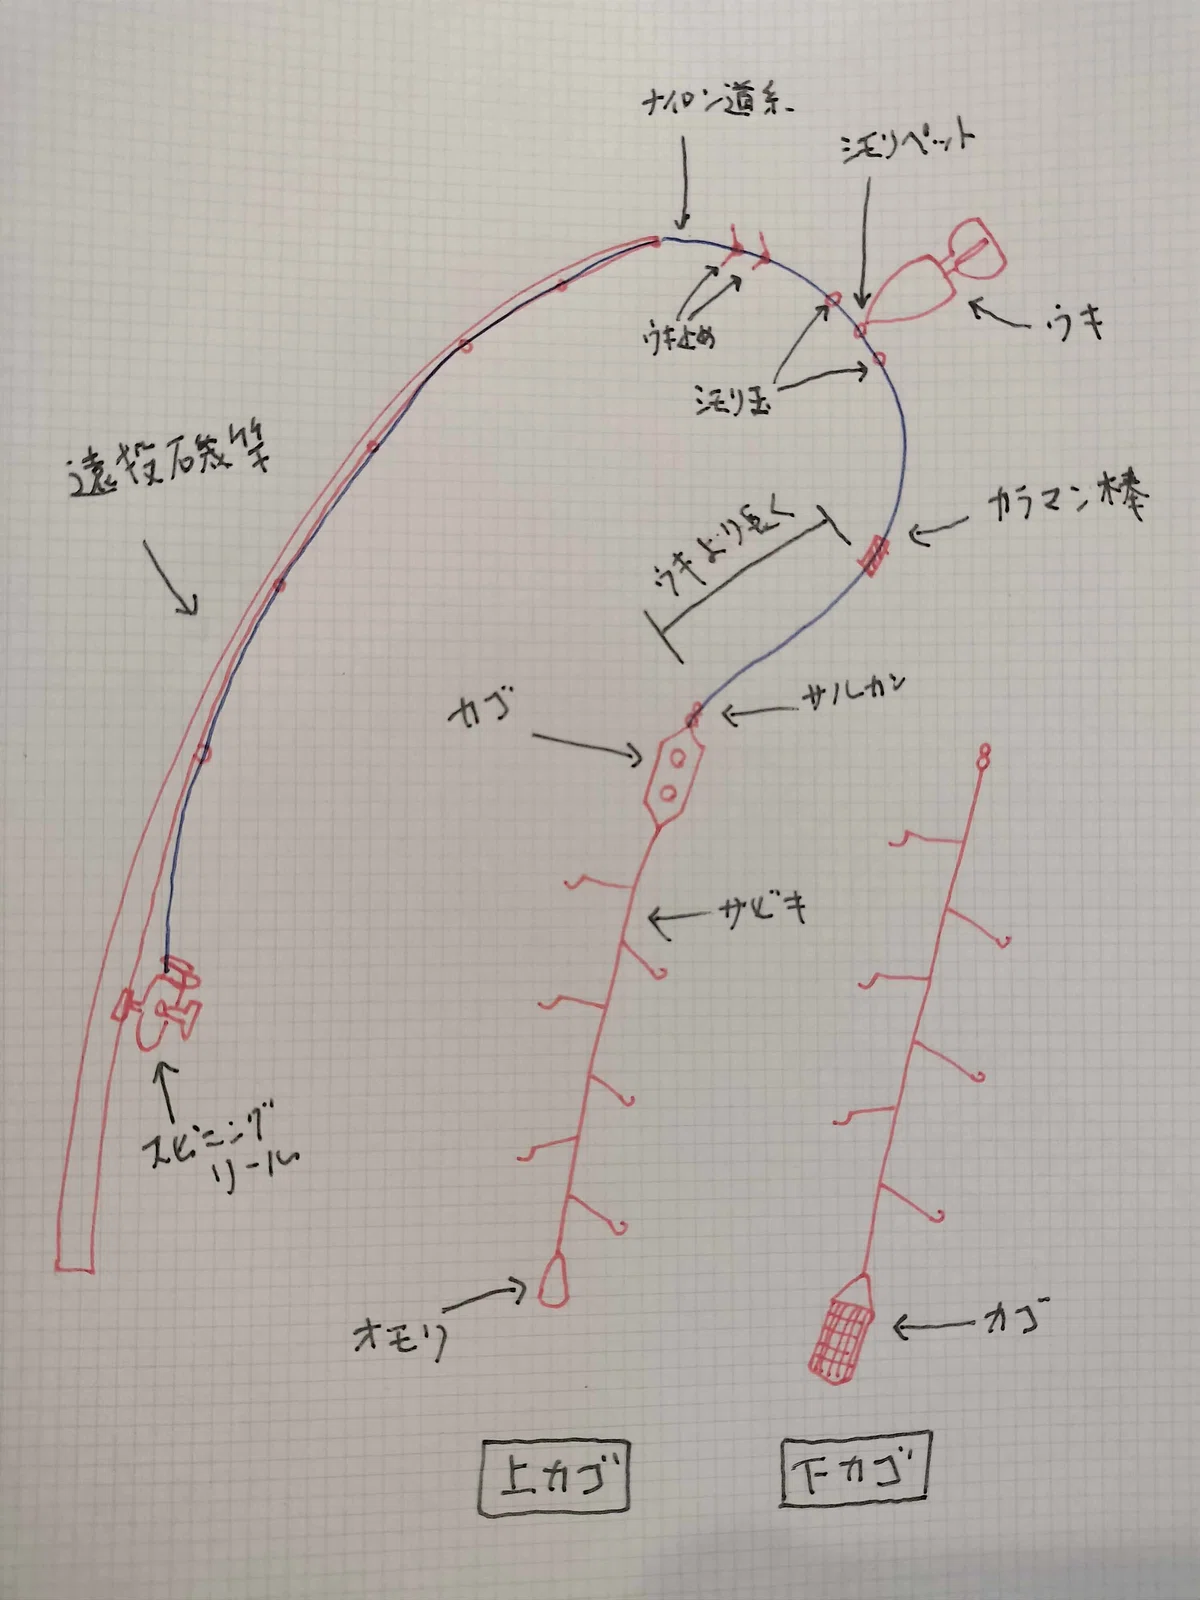 ナイロン道糸
シモリペット
ウキ止め
ウキ
シモリ玉
遠投磯竿
カラマン棒
ウキより長く
カゴ
サルカン
サビキ
スピニング
リール
オモリ
カゴ
上カゴ
下カゴ